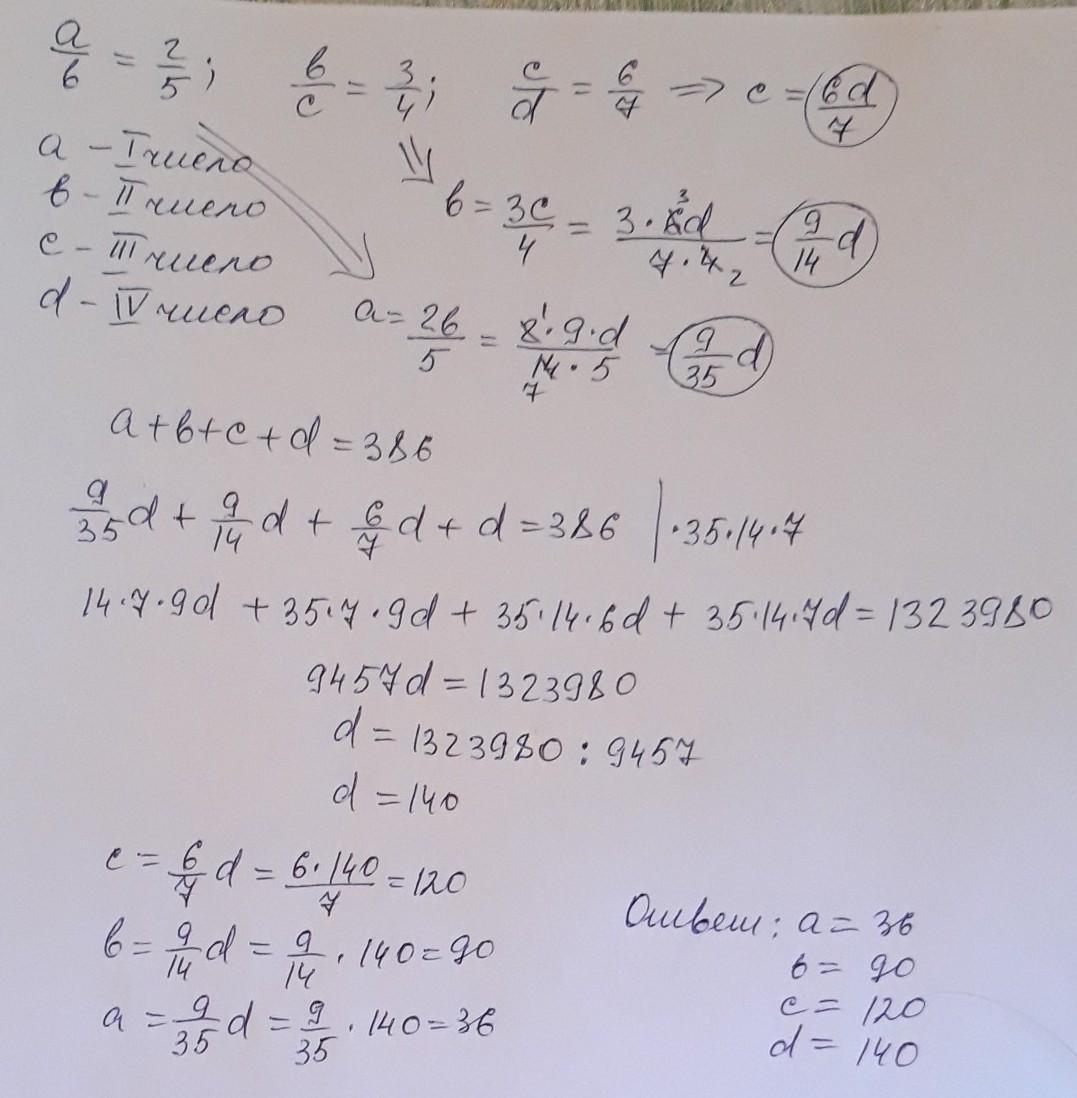 a/в = 2/5; в/c = 3/4; c/d = 6/7 => c = 6d/7
a - I число
в - II число
c - III число
d - IV число
в = 3c/4 = 3·6d/7·4 = 9/14 d
a = 2в/5 = 2·9·d/14·5 = 9/35 d
a+в+c+d = 386
9/35 d + 9/14 d + 6/7 d + d = 386 |·35·14·7
14·7·9d + 35·7·9d + 35·14·6d + 35·14·7d = 1323980
9457d = 1323980
d = 1323980 : 9457
d = 140
c = 6/7 d = 6·140/7 = 120
в = 9/14 d = 9/14 · 140 = 90
a = 9/35 d = 9/35 · 140 = 36
Ответ: a = 36
в = 90
c = 120
d = 140